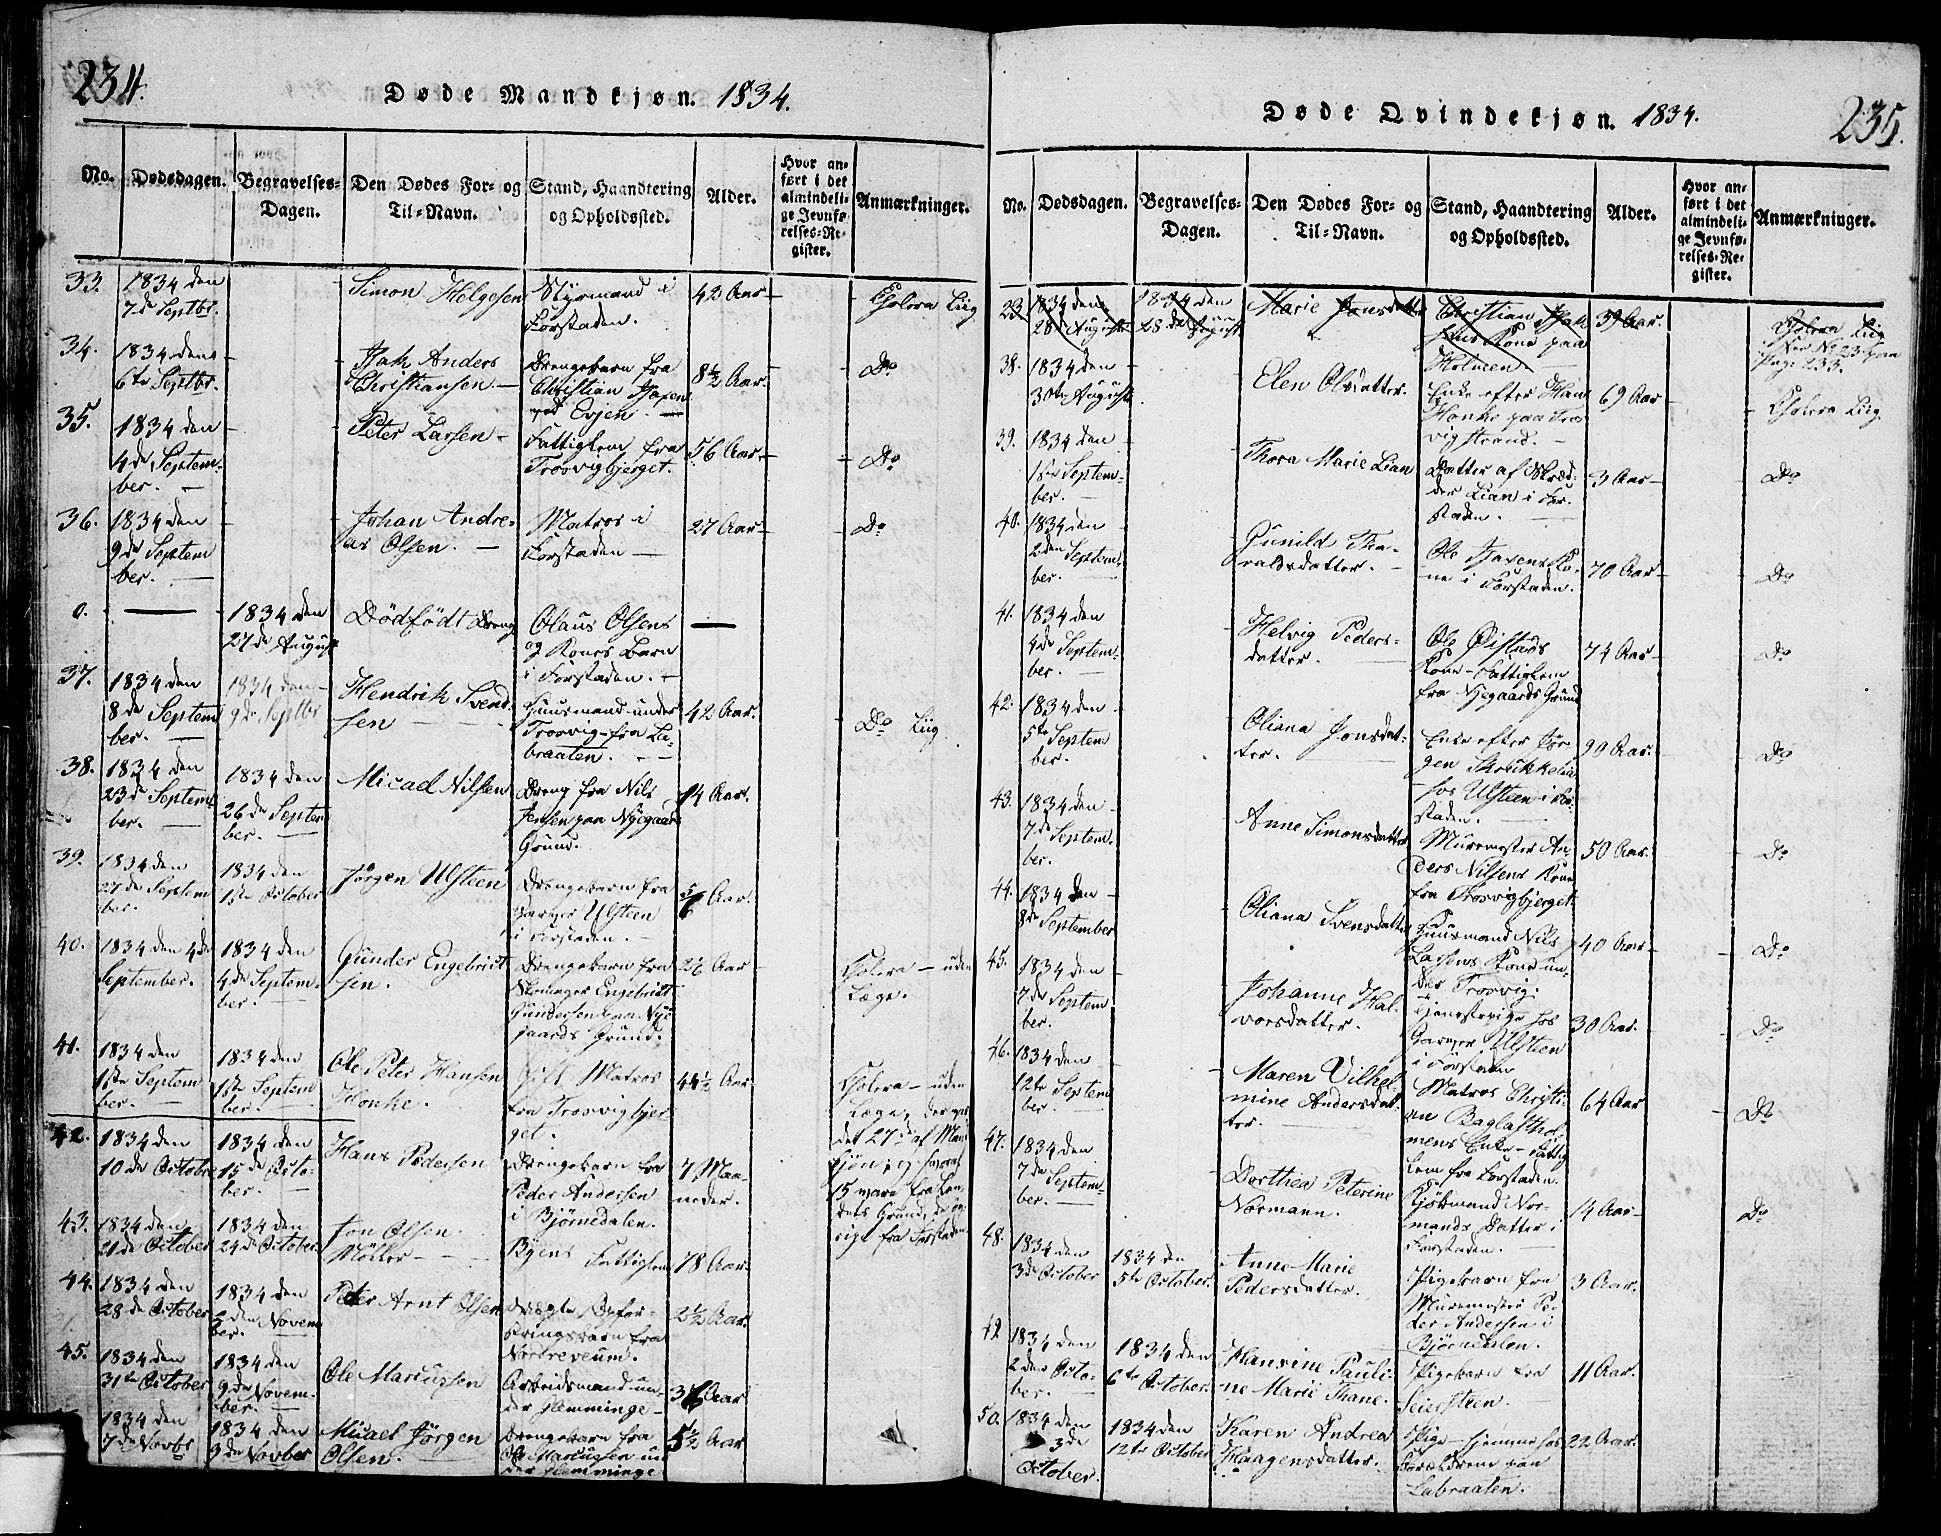 234.
Døde Mandkjøn. 1834.
No.
Dødsdagen.
Begravelses-
Dagen.
Den Dødes For- og
Til-Navn.
Stand, Haandtering
og Opholdssted.
Alder.
Hvor an-
ført i det
almindeli-
ge Jevnfø-
relses-Re-
gister.
Anmærkninger.
33. 1834 den
7de Septbr.
Simon Helgesen
Styrmand i
Forstaden.
42 Aar
Cholera Liig
34. 1834 den
6te Septbr.
Isak Anders
Christiansen.
Drengebarn fra
Christian
Evjen.
8½ Aar.
Do
35. 1834 den
4de Septem-
ber.
Peter Larsen
Fattiglem fra
Trosvigbjerget.
56 Aar
Do
36. 1834 den
9de Septem
ber.
Johan Andre-
as Olsen.
Matros i
Forstaden
27 Aar
Do
0.
1834 den
27de August
Dødfödt Dreng
Olaus Olsens
og Kones Barn
i Forstaden.
37. 1834 den
8de Septem
ber.
1834 den
9de Septbr
Hendrik Svend-
sen
Huusmand under
Trosvig fra La-
braaten.
42 Aar.
Do Liig.
38. 1834 den
23de Septem-
ber.
1834 den
26de Septem
ber.
Micad Nilsen
Dreng fra Nils
Jensen paa Nyegaards
Grund.
14 Aar.
39. 1834 den
27de Septem
ber.
1834 den
1ste October
Jörgen Ulsteen
Drengebarn fra
Garver Ulsteen
i Forstaden.
5/6 Aar.
40. 1834 den 4de
September.
1834 den
4de Septem-
ber.
Gunder Engebrict
sen.
Drengebarn fra
Engebrict
Gundersen paa Nye
gaards Grund.
2⅙ Aar
Cholera - uden
Læge.
41. 1834 den
1ste Septem
ber.
1834 den
1ste Septem
ber.
Ole Peter Hansen
Honke.
Gift Matros
fra Trosvigbjer
get.
44½ Aar
Cholera - uden
Læge,
det 27de af Mand
kjön; og hvoraf
15 vare fra Lan-
dets Grund, de öv-
rige fra Forstaden
42. 1834 den
10de October
1834 den
15de Octo-
ber.
Hans Pedersen
Drengebarn fra
Peder Andersen
i Bjørnedalen.
7 Maa-
neder.
43. 1834 den
21de October
1834 den
24de October.
Jon Olsen
Möller
Byens Fattiglem
78 Aar
44. 1834 den
28de October
1834 den
2den Novem
ber.
Peter Arnt Olsen
barn fra
Nortreveum.
2½ Aar.
45. 1834 den
31te October
1834 den
9de Novem-
ber.
Ole Marcussen
Arbeidsmand un-
der Hemminge
Aar
1834 den
7de Novbr
1834 den
9de Novber
Micael Jörgen
Olsen.
Drengebarn fra
Ole Marcussen un
der Hemminge
5½ Aar
235.
Døde Qvindekjøn. 1834.
No.
Dødsdagen.
Begravelses-
Dagen.
Den Dødes For- og
Til-Navn.
Stand, Haandtering
og Opholdssted.
Alder.
Hvor an-
ført i det
almindeli-
ge Jevnfø-
relses-Re-
gister.
Anmærkninger.
23. 1834 den
28de August
1834 den
28de August
Marie Jonsdatter
Christian
Kone paa
Holmen
39 Aar.
Cholera Liig
See No 23 paa
Page 233.
38. 1834 den
30te August
Elen Olsdatter.
Enke efter Hans
Honke paa Tros
vigstrand.
69 Aar
Cholera Liig
39. 1834 den
1ste Septem-
ber.
Thora Marie Lian
Datter af Skræd-
der Lian i For-
staden.
3 Aar
Do
40. 1834 den
2den Septem-
ber.
Gunild Tha-
raldsdatter.
Ole Ko-
ne i Forstaden.
70 Aar
Do
41. 1834 den
4de Septem-
ber.
Helvig Peders-
datter.
Ole Øistads
Kone - Fattiglem
fra Nyegaards Grund
74 Aar
Do
42. 1834 den
5te Septem
ber.
Oliana Jonsdat-
ter.
Enke efter Jör-
gen
hos Ulsteen i For-
staden.
99 Aar.
Do
43. 1834 den
7de Septem-
ber.
Anne Simonsdatter
Muremester An
ders Nilsens Kone
fra Trosvigbjerget.
50 Aar.
Do
44. 1834 den
8de September
Oliana Svensdatter
Huusmand Nils
Larsens Kone un-
der Trosvig.
40 Aar
Do
45. 1834 den
7de Septem
ber.
Johanne Hal-
vorsdatter.
Tjenestepige hos
Garver Ulsteen
i Forstaden
30 Aar.
Do
46. 1834 den
12te Septem
ber.
Maren Vilhel-
mine Andersdat-
ter.
Matros Christi-
an Baglasthol-
mens Enke - Fattig
lem fra Forstaden.
64 Aar
Do
47. 1834 den
7de Septem-
ber.
Dorthea Peterine
Normann.
Kjöbmand Nor-
mands Datter i
Forstaden.
14 Aar
Do
48. 1834 den
3de October
1834 den
5te October.
Anne Marie
Pedersdatter.
Pigebarn fra
Muremester Pe-
der Andersen i
Bjørnedalen.
3 Aar.
49. 1834 den
2den Octo-
ber.
1834 den
6te October.
Hansine Pauli-
ne Marie Thane.
Pigebarn fra
Seiersteen.
11 Aar.
50. 1834 den
3de
October.
1834 den
12te October
Karen Andrea
Haagensdatter.
Pige - hjemme hos
Forældrene paa
Labraaten.
22 Aar.